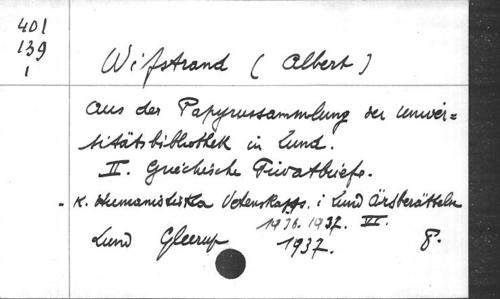 401
139
1
Wifstrand (Albert)
Aus der Papyrussammlung der Univer=
sitätsbibliothek in Lund.
II. Griechische Privatbriefe.
- K. Humanistiska Vetenskapss. i Lund Årsberätteln
1936.1937. VI.
Lund Gleerup 1937. 8.